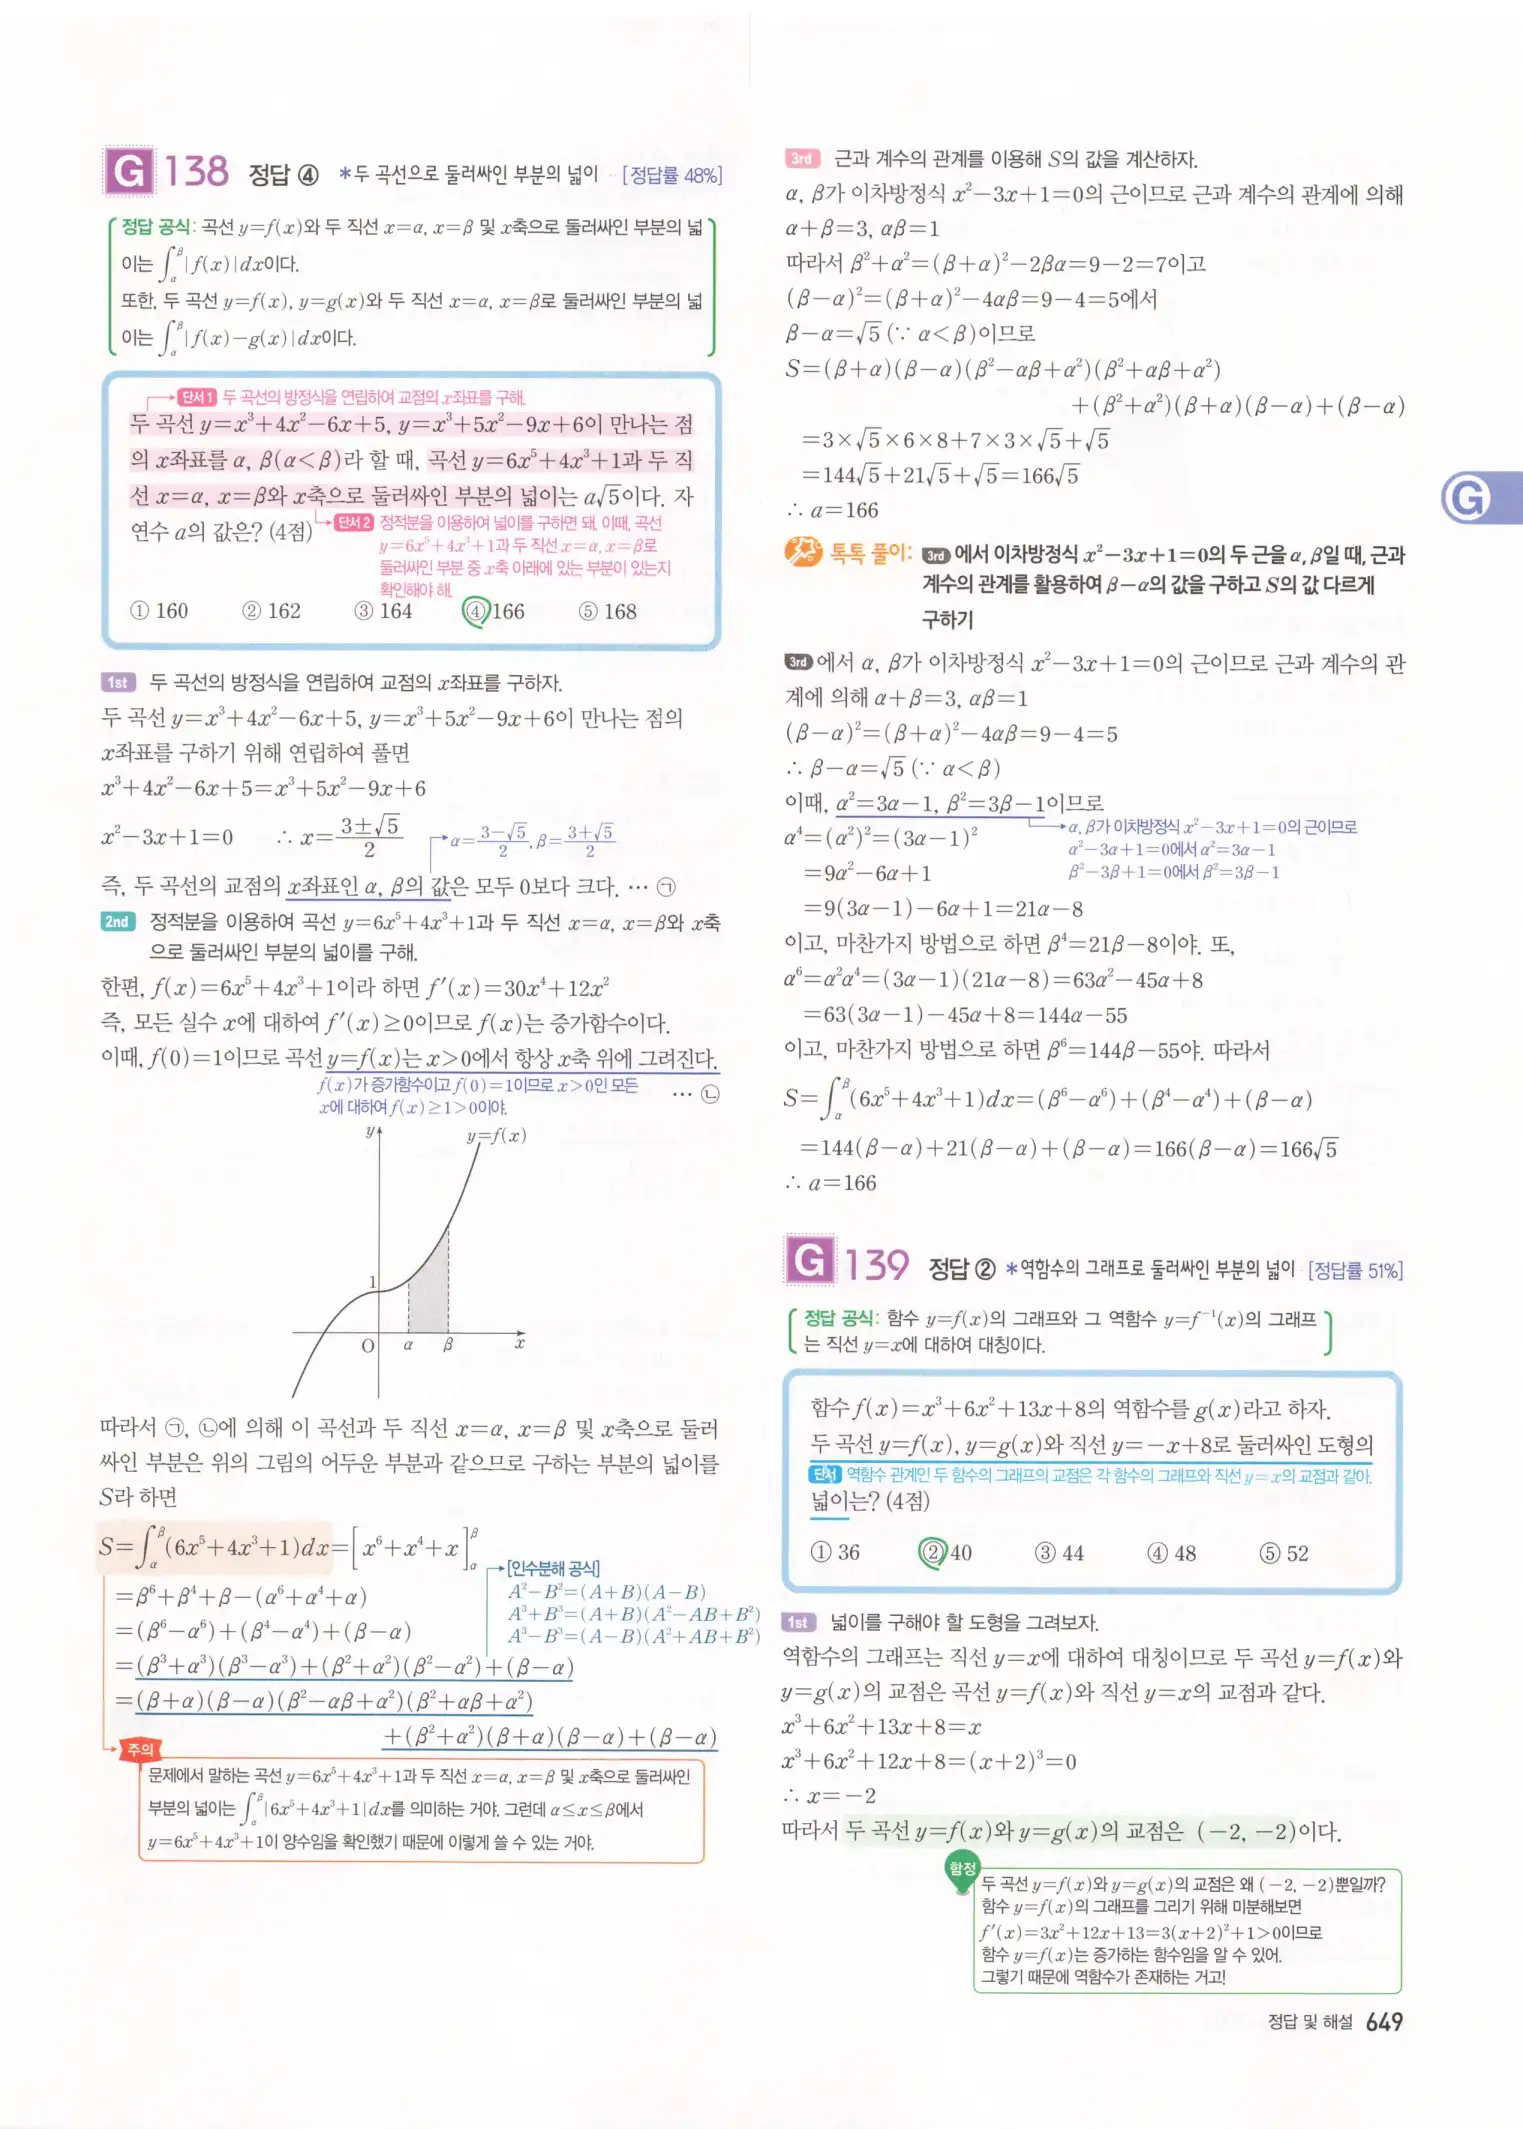 G 138 정답 ④ *두 곡선으로 둘러싸인 부분의 넓이 [정답률 48%]
정답 공식: 곡선 y=f(x)와 두 직선 x=α, x=β 및 x축으로 둘러싸인 부분의 넓
이는 ∫_α^β |f(x)|dx이다.
또한, 두 곡선 y=f(x), y=g(x)와 두 직선 x=α, x=β로 둘러싸인 부분의 넓
이는 ∫_α^β |f(x)-g(x)|dx이다.
단서1 두 곡선의 방정식을 연립하여 교점의 x좌표를 구해.
두 곡선 y=x³+4x²-6x+5, y=x³+5x²-9x+6이 만나는 점
의 x좌표를 α, β(α<β)라 할 때, 곡선 y=6x⁵+4x³+1과 두 직
선 x=α, x=β와 x축으로 둘러싸인 부분의 넓이는 a√5이다. 자
연수 a의 값은? (4점)
단서2 정적분을 이용하여 넓이를 구하면 돼. 이때, 곡선
y=6x⁵+4x³+1과 두 직선 x=α, x=β로
둘러싸인 부분 중 x축 아래에 있는 부분이 있는지
확인해야 해.
① 160 ② 162 ③ 164 ④ 166 ⑤ 168
1st 두 곡선의 방정식을 연립하여 교점의 x좌표를 구하자.
두 곡선 y=x³+4x²-6x+5, y=x³+5x²-9x+6이 만나는 점의
x좌표를 구하기 위해 연립하여 풀면
x³+4x²-6x+5=x³+5x²-9x+6
x²-3x+1=0 ∴ x=(3±√5)/2 α=(3-√5)/2, β=(3+√5)/2
즉, 두 곡선의 교점의 x좌표인 α, β의 값은 모두 0보다 크다. … ㉠
2nd 정적분을 이용하여 곡선 y=6x⁵+4x³+1과 두 직선 x=α, x=β와 x축
으로 둘러싸인 부분의 넓이를 구해.
한편, f(x)=6x⁵+4x³+1이라 하면 f'(x)=30x⁴+12x²
즉, 모든 실수 x에 대하여 f'(x)≥0이므로 f(x)는 증가함수이다.
이때, f(0)=1이므로 곡선 y=f(x)는 x>0에서 항상 x축 위에 그려진다.
f(x)가 증가함수이고 f(0)=1이므로 x>0인 모든 … ㉡
x에 대하여 f(x)≥1>0이야.
y y=f(x)
1
O α β x
따라서 ㉠, ㉡에 의해 이 곡선과 두 직선 x=α, x=β 및 x축으로 둘러
싸인 부분은 위의 그림의 어두운 부분과 같으므로 구하는 부분의 넓이를
S라 하면
S=∫_α^β (6x⁵+4x³+1)dx=[x⁶+x⁴+x]_α^β
=β⁶+β⁴+β-(α⁶+α⁴+α)
=(β⁶-α⁶)+(β⁴-α⁴)+(β-α)
[인수분해 공식]
A²-B²=(A+B)(A-B)
A³+B³=(A+B)(A²-AB+B²)
A³-B³=(A-B)(A²+AB+B²)
=(β³+α³)(β³-α³)+(β²+α²)(β²-α²)+(β-α)
=(β+α)(β-α)(β²-αβ+α²)(β²+αβ+α²)
+(β²+α²)(β+α)(β-α)+(β-α)
주의
문제에서 말하는 곡선 y=6x⁵+4x³+1과 두 직선 x=α, x=β 및 x축으로 둘러싸인
부분의 넓이는 ∫_α^β |6x⁵+4x³+1|dx를 의미하는 거야. 그런데 α≤x≤β에서
y=6x⁵+4x³+1이 양수임을 확인했기 때문에 이렇게 쓸 수 있는 거야.
3rd 근과 계수의 관계를 이용해 S의 값을 계산하자.
α, β가 이차방정식 x²-3x+1=0의 근이므로 근과 계수의 관계에 의해
α+β=3, αβ=1
따라서 β²+α²=(β+α)²-2βα=9-2=7이고
(β-α)²=(β+α)²-4αβ=9-4=5에서
β-α=√5 (∵ α<β)이므로
S=(β+α)(β-α)(β²-αβ+α²)(β²+αβ+α²)
+(β²+α²)(β+α)(β-α)+(β-α)
=3×√5×6×8+7×3×√5+√5
=144√5+21√5+√5=166√5
∴ a=166
G
톡톡 풀이: 3rd에서 이차방정식 x²-3x+1=0의 두 근을 α, β일 때, 근과
계수의 관계를 활용하여 β-α의 값을 구하고 S의 값 다르게
구하기
3rd에서 α, β가 이차방정식 x²-3x+1=0의 근이므로 근과 계수의 관
계에 의해 α+β=3, αβ=1
(β-α)²=(β+α)²-4αβ=9-4=5
∴ β-α=√5 (∵ α<β)
이때, α²=3α-1, β²=3β-1이므로
α, β가 이차방정식 x²-3x+1=0의 근이므로
α²-3α+1=0에서 α²=3α-1
β²-3β+1=0에서 β²=3β-1
α⁴=(α²)²=(3α-1)²
=9α²-6α+1
=9(3α-1)-6α+1=21α-8
이고, 마찬가지 방법으로 하면 β⁴=21β-8이야. 또,
α⁶=α²α⁴=(3α-1)(21α-8)=63α²-45α+8
=63(3α-1)-45α+8=144α-55
이고, 마찬가지 방법으로 하면 β⁶=144β-55야. 따라서
S=∫_α^β (6x⁵+4x³+1)dx=(β⁶-α⁶)+(β⁴-α⁴)+(β-α)
=144(β-α)+21(β-α)+(β-α)=166(β-α)=166√5
∴ a=166
G 139 정답 ② *역함수의 그래프로 둘러싸인 부분의 넓이 [정답률 51%]
정답 공식: 함수 y=f(x)의 그래프와 그 역함수 y=f⁻¹(x)의 그래프
는 직선 y=x에 대하여 대칭이다.
함수 f(x)=x³+6x²+13x+8의 역함수를 g(x)라고 하자.
두 곡선 y=f(x), y=g(x)와 직선 y=-x+8로 둘러싸인 도형의
단서 역함수 관계인 두 함수의 그래프의 교점은 각 함수의 그래프와 직선 y=x의 교점과 같아.
넓이는? (4점)
① 36 ② 40 ③ 44 ④ 48 ⑤ 52
1st 넓이를 구해야 할 도형을 그려보자.
역함수의 그래프는 직선 y=x에 대하여 대칭이므로 두 곡선 y=f(x)와
y=g(x)의 교점은 곡선 y=f(x)와 직선 y=x의 교점과 같다.
x³+6x²+13x+8=x
x³+6x²+12x+8=(x+2)³=0
∴ x=-2
따라서 두 곡선 y=f(x)와 y=g(x)의 교점은 (-2, -2)이다.
함정
두 곡선 y=f(x)와 y=g(x)의 교점은 왜 (-2, -2)뿐일까?
함수 y=f(x)의 그래프를 그리기 위해 미분해보면
f'(x)=3x²+12x+13=3(x+2)²+1>0이므로
함수 y=f(x)는 증가하는 함수임을 알 수 있어.
그렇기 때문에 역함수가 존재하는 거고!
정답 및 해설 649